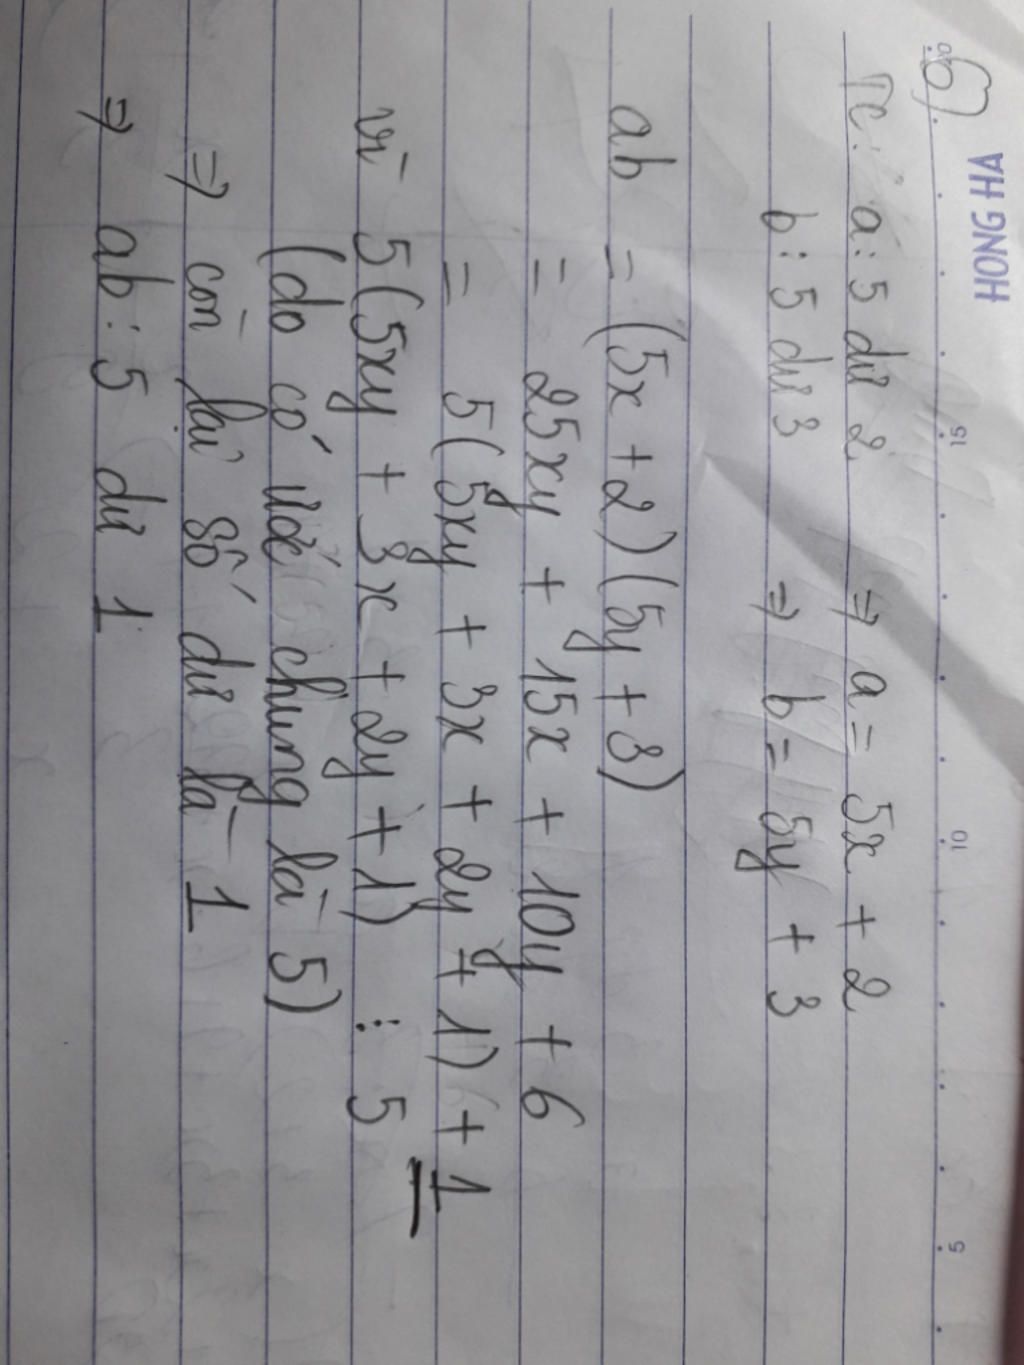 HONG HA
20 15 10 5
6).
TC: a : 5 dư 2 ⇒ a = 5x + 2
b : 5 dư 3 ⇒ b = 5y + 3
ab = (5x + 2)(5y + 3)
= 25xy + 15x + 10y + 6
= 5(5xy + 3x + 2y + 1) + 1
vì 5(5xy + 3x + 2y + 1) ⋮ 5
(do có ước chung là 5)
⇒ còn lại số dư là 1
⇒ ab : 5 dư 1